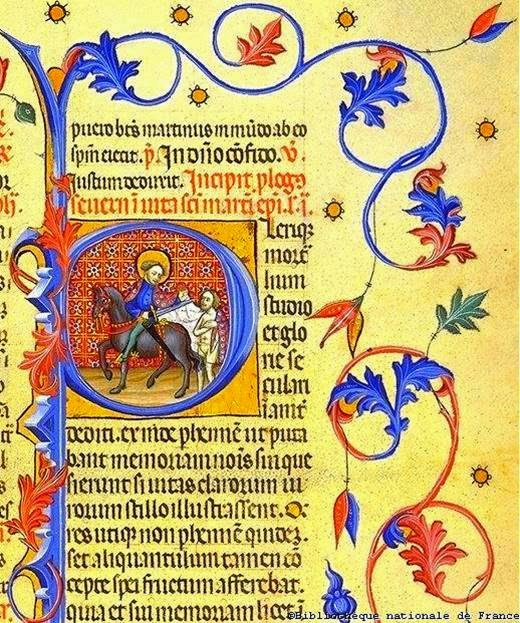 puero btũs martinus in mũdo ab eo
spm̃ eiecit. p̃. In dño cõfido. v̊.
Iustum deduxit. Incipit plog9
severii ĩ uita sci marti epi.
Plerique
mort̃
lium
studio
et glo
rie se
culari
inanit̃
dediti. exinde phennẽ ut puta
bant memoriam nois sui que
sierunt si uitas clarorum ui
rorum stillo illustrassent.
res utique non phennẽ quidez
set aliquantulum tamen cõ
cepte spei fructum afferebat.
quia et sui memoriam licet ĩ
©Bibliothèque nationale de France